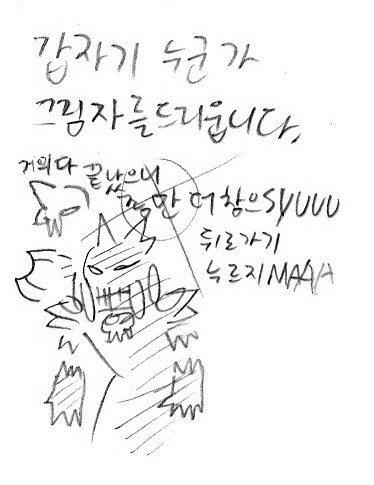 갑자기 누군가
그림자를드리웁니다.
거의다 끝났으니
좀만 더 참으SYUUU
뒤로가기
누르지MAAA